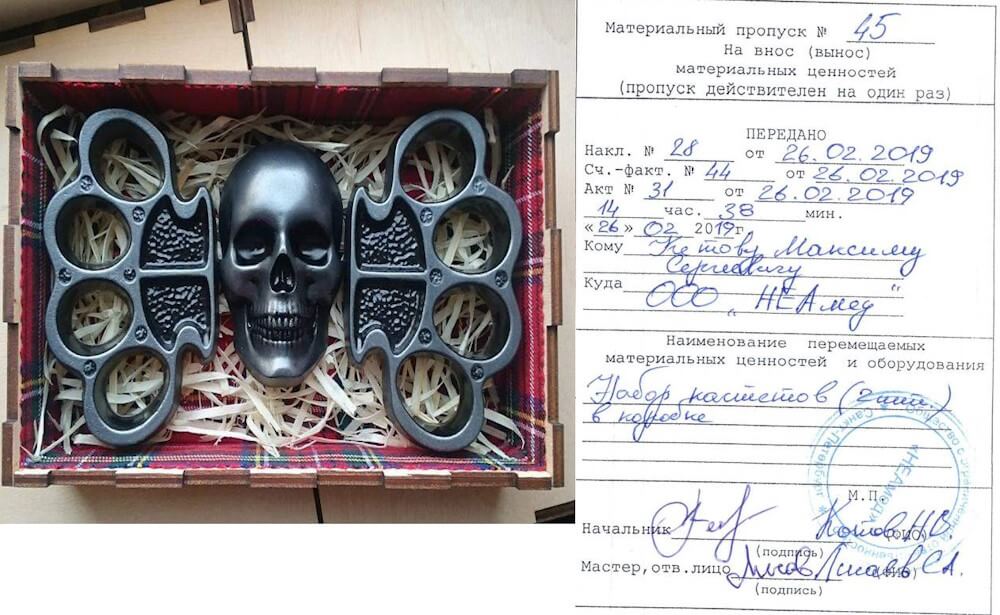 Материальный пропуск № 45
На внос (вынос)
материальных ценностей
(пропуск действителен на один раз)
ПЕРЕДАНО
Накл. № 28 от 26.02.2019
Сч.-факт. № 44 от 26.02.2019
Акт № 31 от 26.02.2019
14 час. 38 мин.
«26» 02 2019г.
Кому Котову Максиму
Сергеевичу
Куда ООО "НЕАмед"
Наименование перемещаемых
материальных ценностей и оборудования
Набор кастетов (2 шт.)
в коробке
М.П.
Начальник Котов Н.В.
(ФИО)
(подпись)
Мастер,отв.лицо С.А.
(ФИО)
(подпись)
Санкт-Петербург
«НЕАмед»